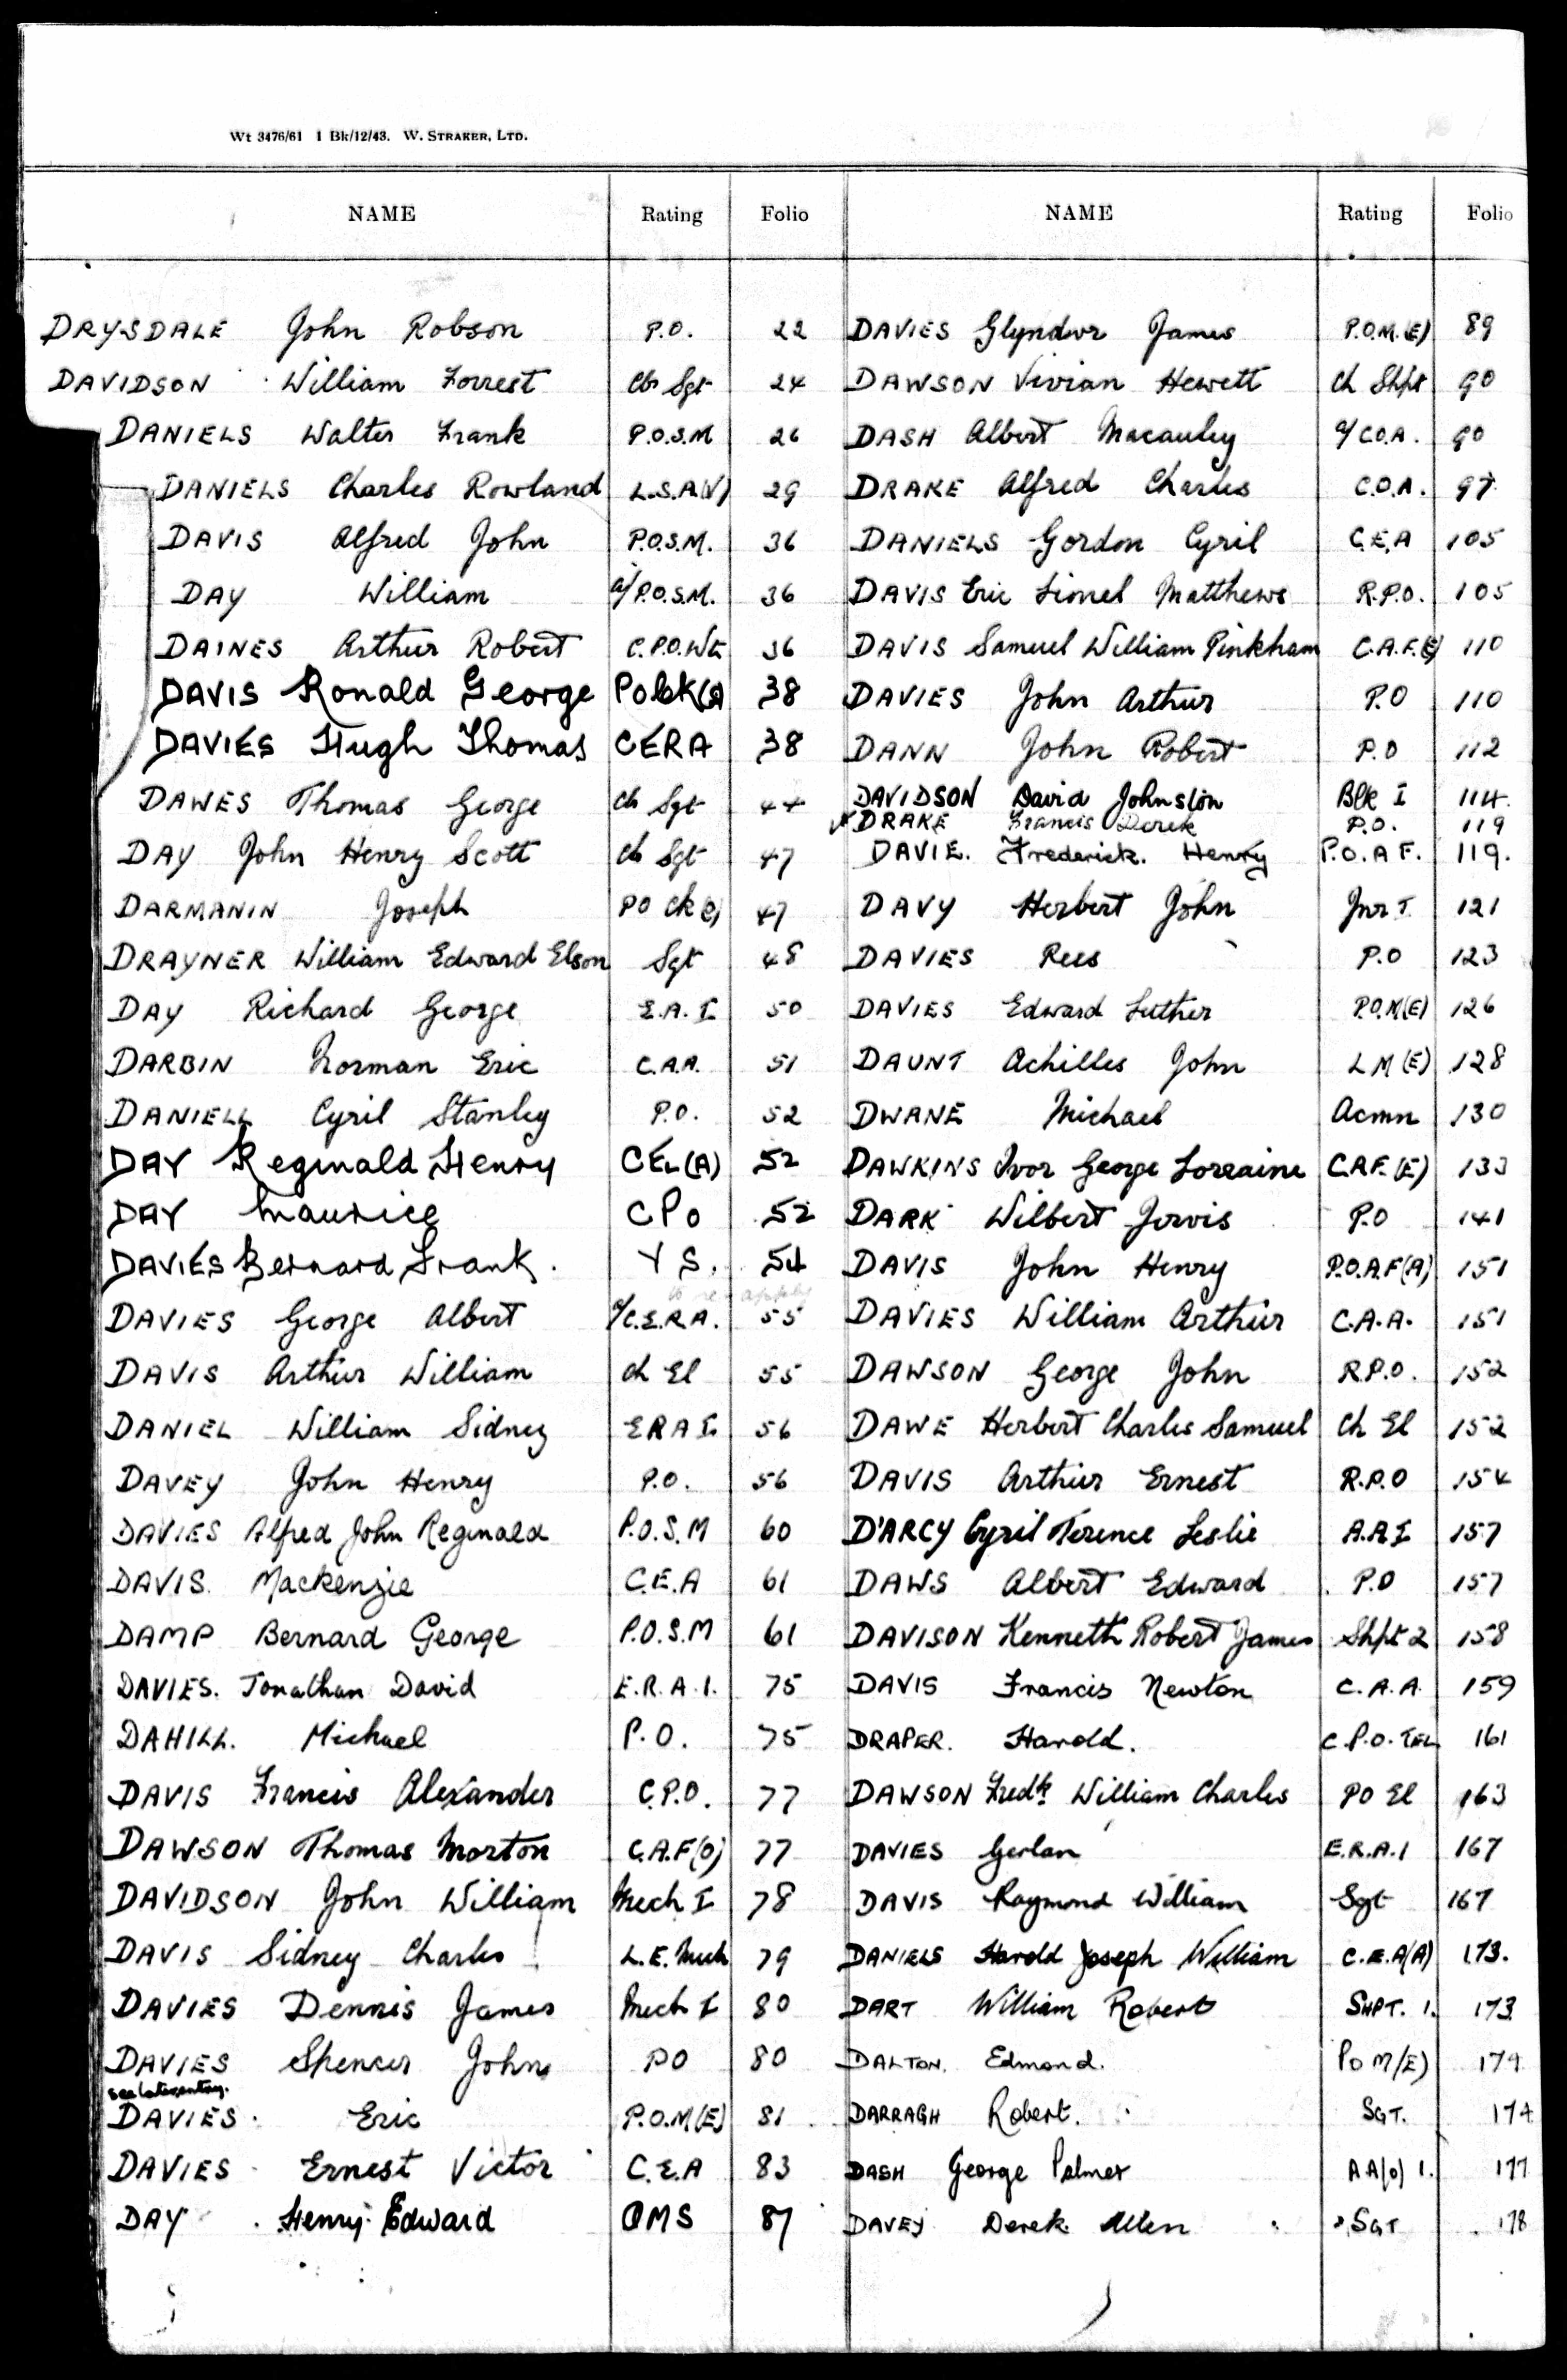 Wt 3476/61 1 Bk/12/43. W. STRAKER, LTD.
NAME Rating Folio
DRYSDALE John Robson P.O. 22
DAVIDSON William Forrest Clr Sgt 24
DANIELS Walter Frank P.O.S.M 26
DANIELS Charles Rowland L.S.A.(V) 29
DAVIS Alfred John P.O.S.M. 36
DAY William a/P.O.S.M. 36
DAINES Arthur Robert C.P.O.Wtr 36
DAVIS Ronald George PO Ck(S) 38
DAVIES Hugh Thomas CERA 38
DAWES Thomas George Clr Sgt 44
DAY John Henry Scott Clr Sgt 47
DARMANIN Joseph PO Ck(O) 47
DRAYNER William Edward Elson Sgt 48
DAY Richard George E.A. I 50
DARBIN Norman Eric C.A.A. 51
DANIELL Cyril Stanley P.O. 52
DAY Reginald Henry CEL(A) 52
DAY Maurice CPO 52
DAVIES Bernard Frank. Y S. 54
to re-apply
DAVIES George Albert a/C.E.R.A. 55
DAVIS Arthur William Ch El 55
DANIEL William Sidney ERA I 56
DAVEY John Henry P.O. 56
DAVIES Alfred John Reginald P.O.S.M 60
DAVIS. Mackenzie C.E.A 61
DAMP Bernard George P.O.S.M 61
DAVIES. Jonathan David E.R.A.1. 75
DAHILL. Michael P.O. 75
DAVIS Francis Alexander C.P.O. 77
DAWSON Thomas Morton C.A.F(O) 77
DAVIDSON John William Mech I 78
DAVIS Sidney Charles L.E.Mech 79
DAVIES Dennis James Mech I 80
DAVIES Spencer John PO 80
see later entry.
DAVIES. Eric P.O.M(E) 81
DAVIES Ernest Victor C.E.A 83
DAY Henry Edward QMS 87
NAME Rating Folio
DAVIES Glyndwr James P.O.M.(E) 89
DAWSON Vivian Hewett Ch Shpt 90
DASH Albert Macauley a/C.O.A. 90
DRAKE Alfred Charles C.O.A. 97
DANIELS Gordon Cyril C.E.A 105
DAVIS Eric Lionel Matthews R.P.O. 105
DAVIS Samuel William Pinkham C.A.F.(E) 110
DAVIES John Arthur P.O 110
DANN John Robert P.O 112
DAVIDSON David Johnston Blk I 114.
DRAKE Francis Derek P.O. 119
DAVIE. Frederick. Henry P.O.A F. 119.
DAVY Herbert John Jnr I 121
DAVIES Rees P.O 123
DAVIES Edward Luther P.O.M(E) 126
DAUNT Achilles John L M (E) 128
DWANE Michael Acmn 130
DAWKINS Ivor George Lorraine C.A.F.(E) 133
DARK Wilbert Jervis P.O 141
DAVIS John Henry P.O.A.F(A) 151
DAVIES William Arthur C.A.A. 151
DAWSON George John R.P.O. 152
DAWE Herbert Charles Samuel Ch El 152
DAVIS Arthur Ernest R.P.O 154
D'ARCY Cyril Terence Leslie A.A I 157
DAWS Albert Edward P.O 157
DAVISON Kenneth Robert James Shpt 2 158
DAVIS Francis Newton C.A.A. 159
DRAPER. Harold. C.P.O. TEL 161
DAWSON Fredk William Charles PO El 163
DAVIES Gerlan E.R.A.1 167
DAVIS Raymond William Sgt 167
DANIELS Harold Joseph William C.E.A(A) 173.
DART William Robert SHPT. 1. 173
DALTON. Edmond. PO M/(E) 174
DARRAGH Robert. SGT. 174
DASH George Palmer AA(O) 1. 177
DAVEY Derek Allen SGT 178